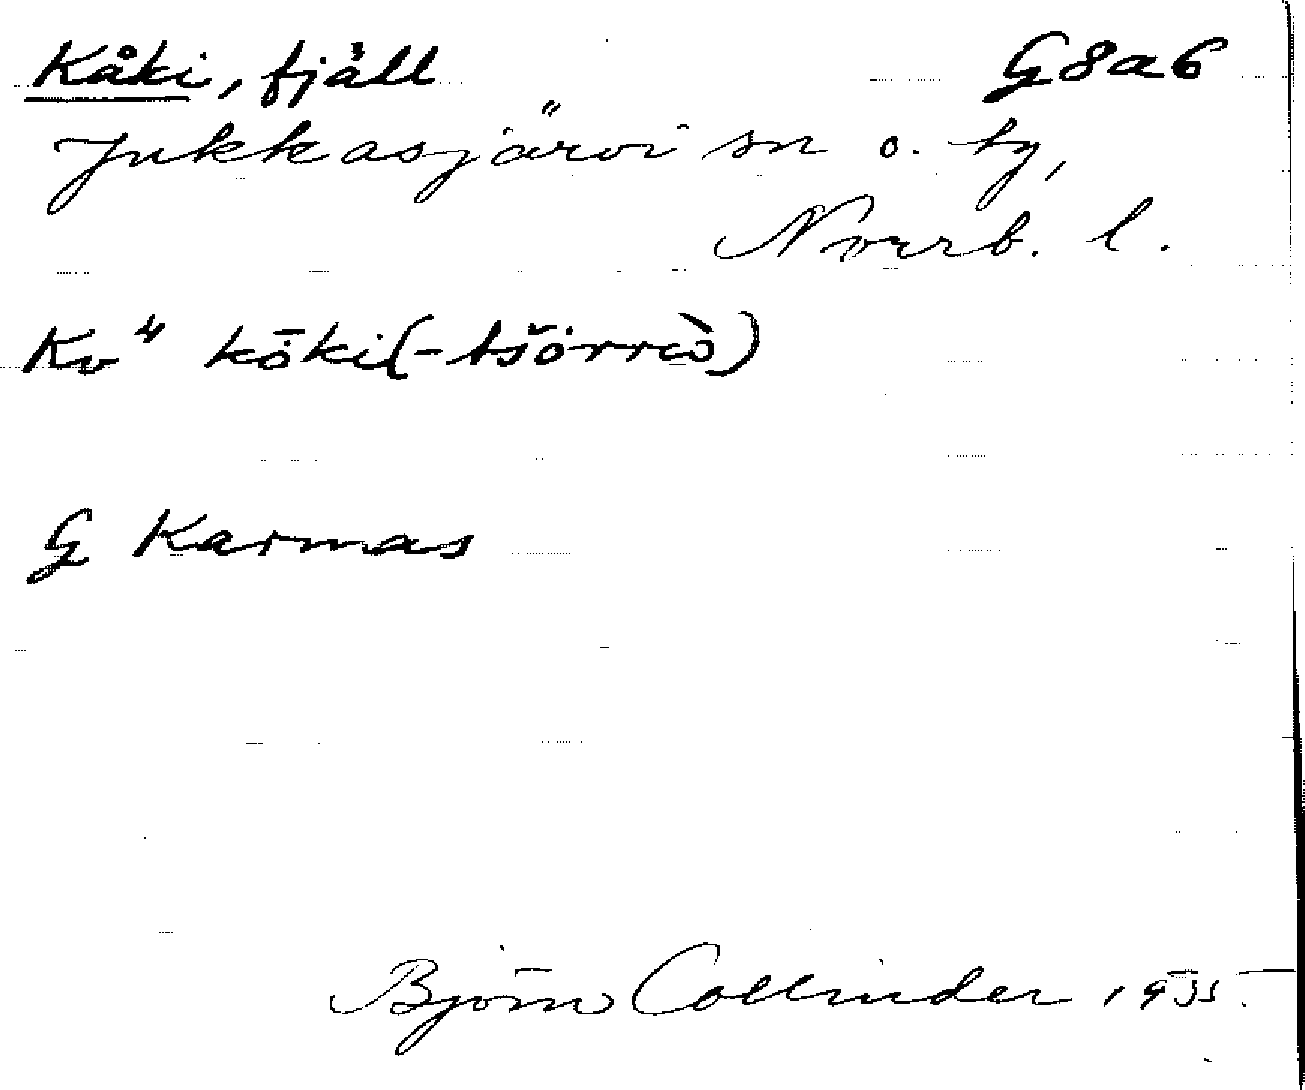 Kåki, fjäll G8a6
Jukkasjärvi sn o. tg,
Norrb. l.
Kv" kō̇ki(-tšȯrrɷ̀)
G Karmas
Björn Collinder 1935.